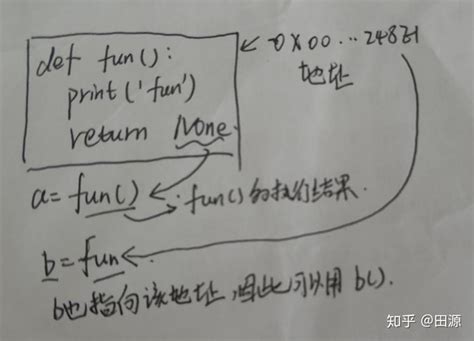 def fun():
print('fun')
return None
0x00...248E1
地址
a= fun()
fun()的执行结果.
b=fun
b也指向该地址,因此可以用 b().
知乎 @田源